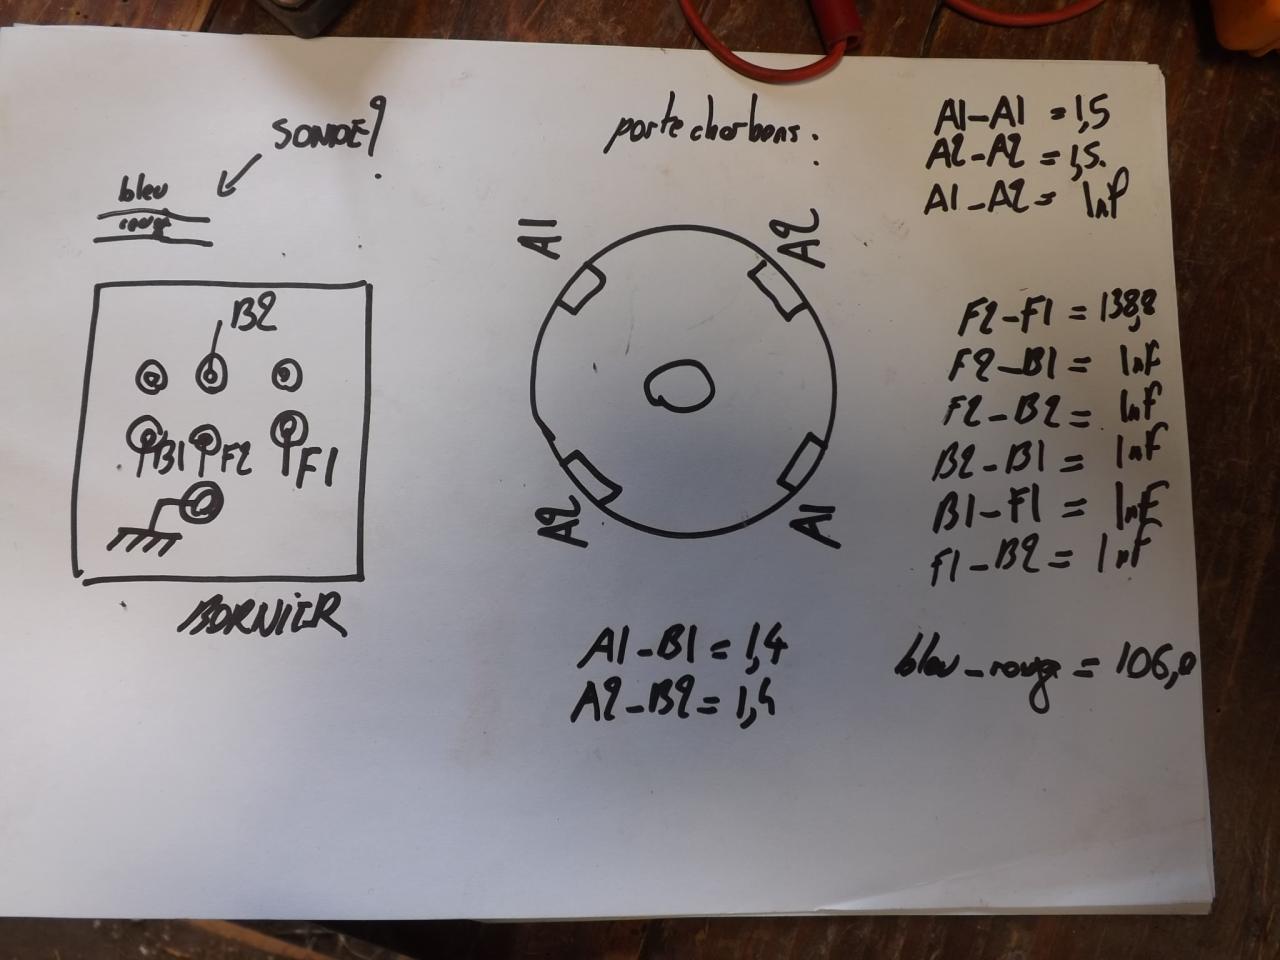 SONDE?
bleu
rouge
B2
B1 F2 F1
BORNIER
porte charbons :
A1 A2
A2 A1
A1-B1 = 1,4
A2-B2 = 1,4
A1-A1 = 1,5
A2-A2 = 1,5.
A1-A2 = Inf
F2-F1 = 138,8
F2-B1 = Inf
F2-B2 = Inf
B2-B1 = Inf
B1-F1 = Inf
F1-B2 = Inf
bleu-rouge = 106,0